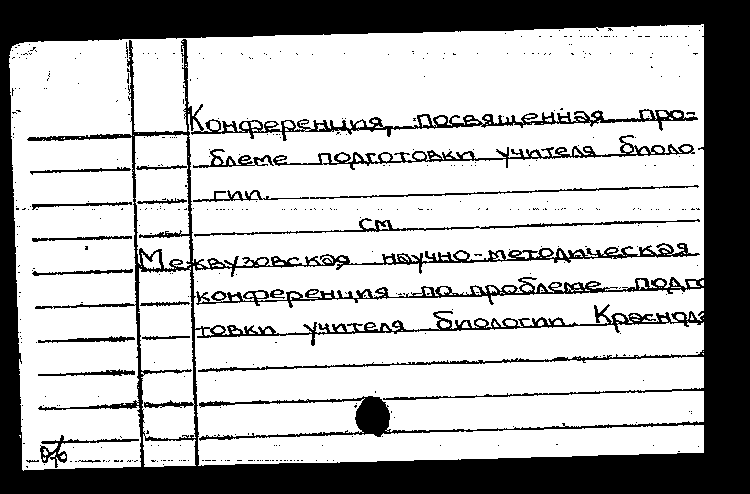 Конференция, посвященная про-
блеме подготовки учителя биоло-
гии.
см
Межвузовская научно-методическая
конференция по проблеме подго
товки учителя биологии. Краснода